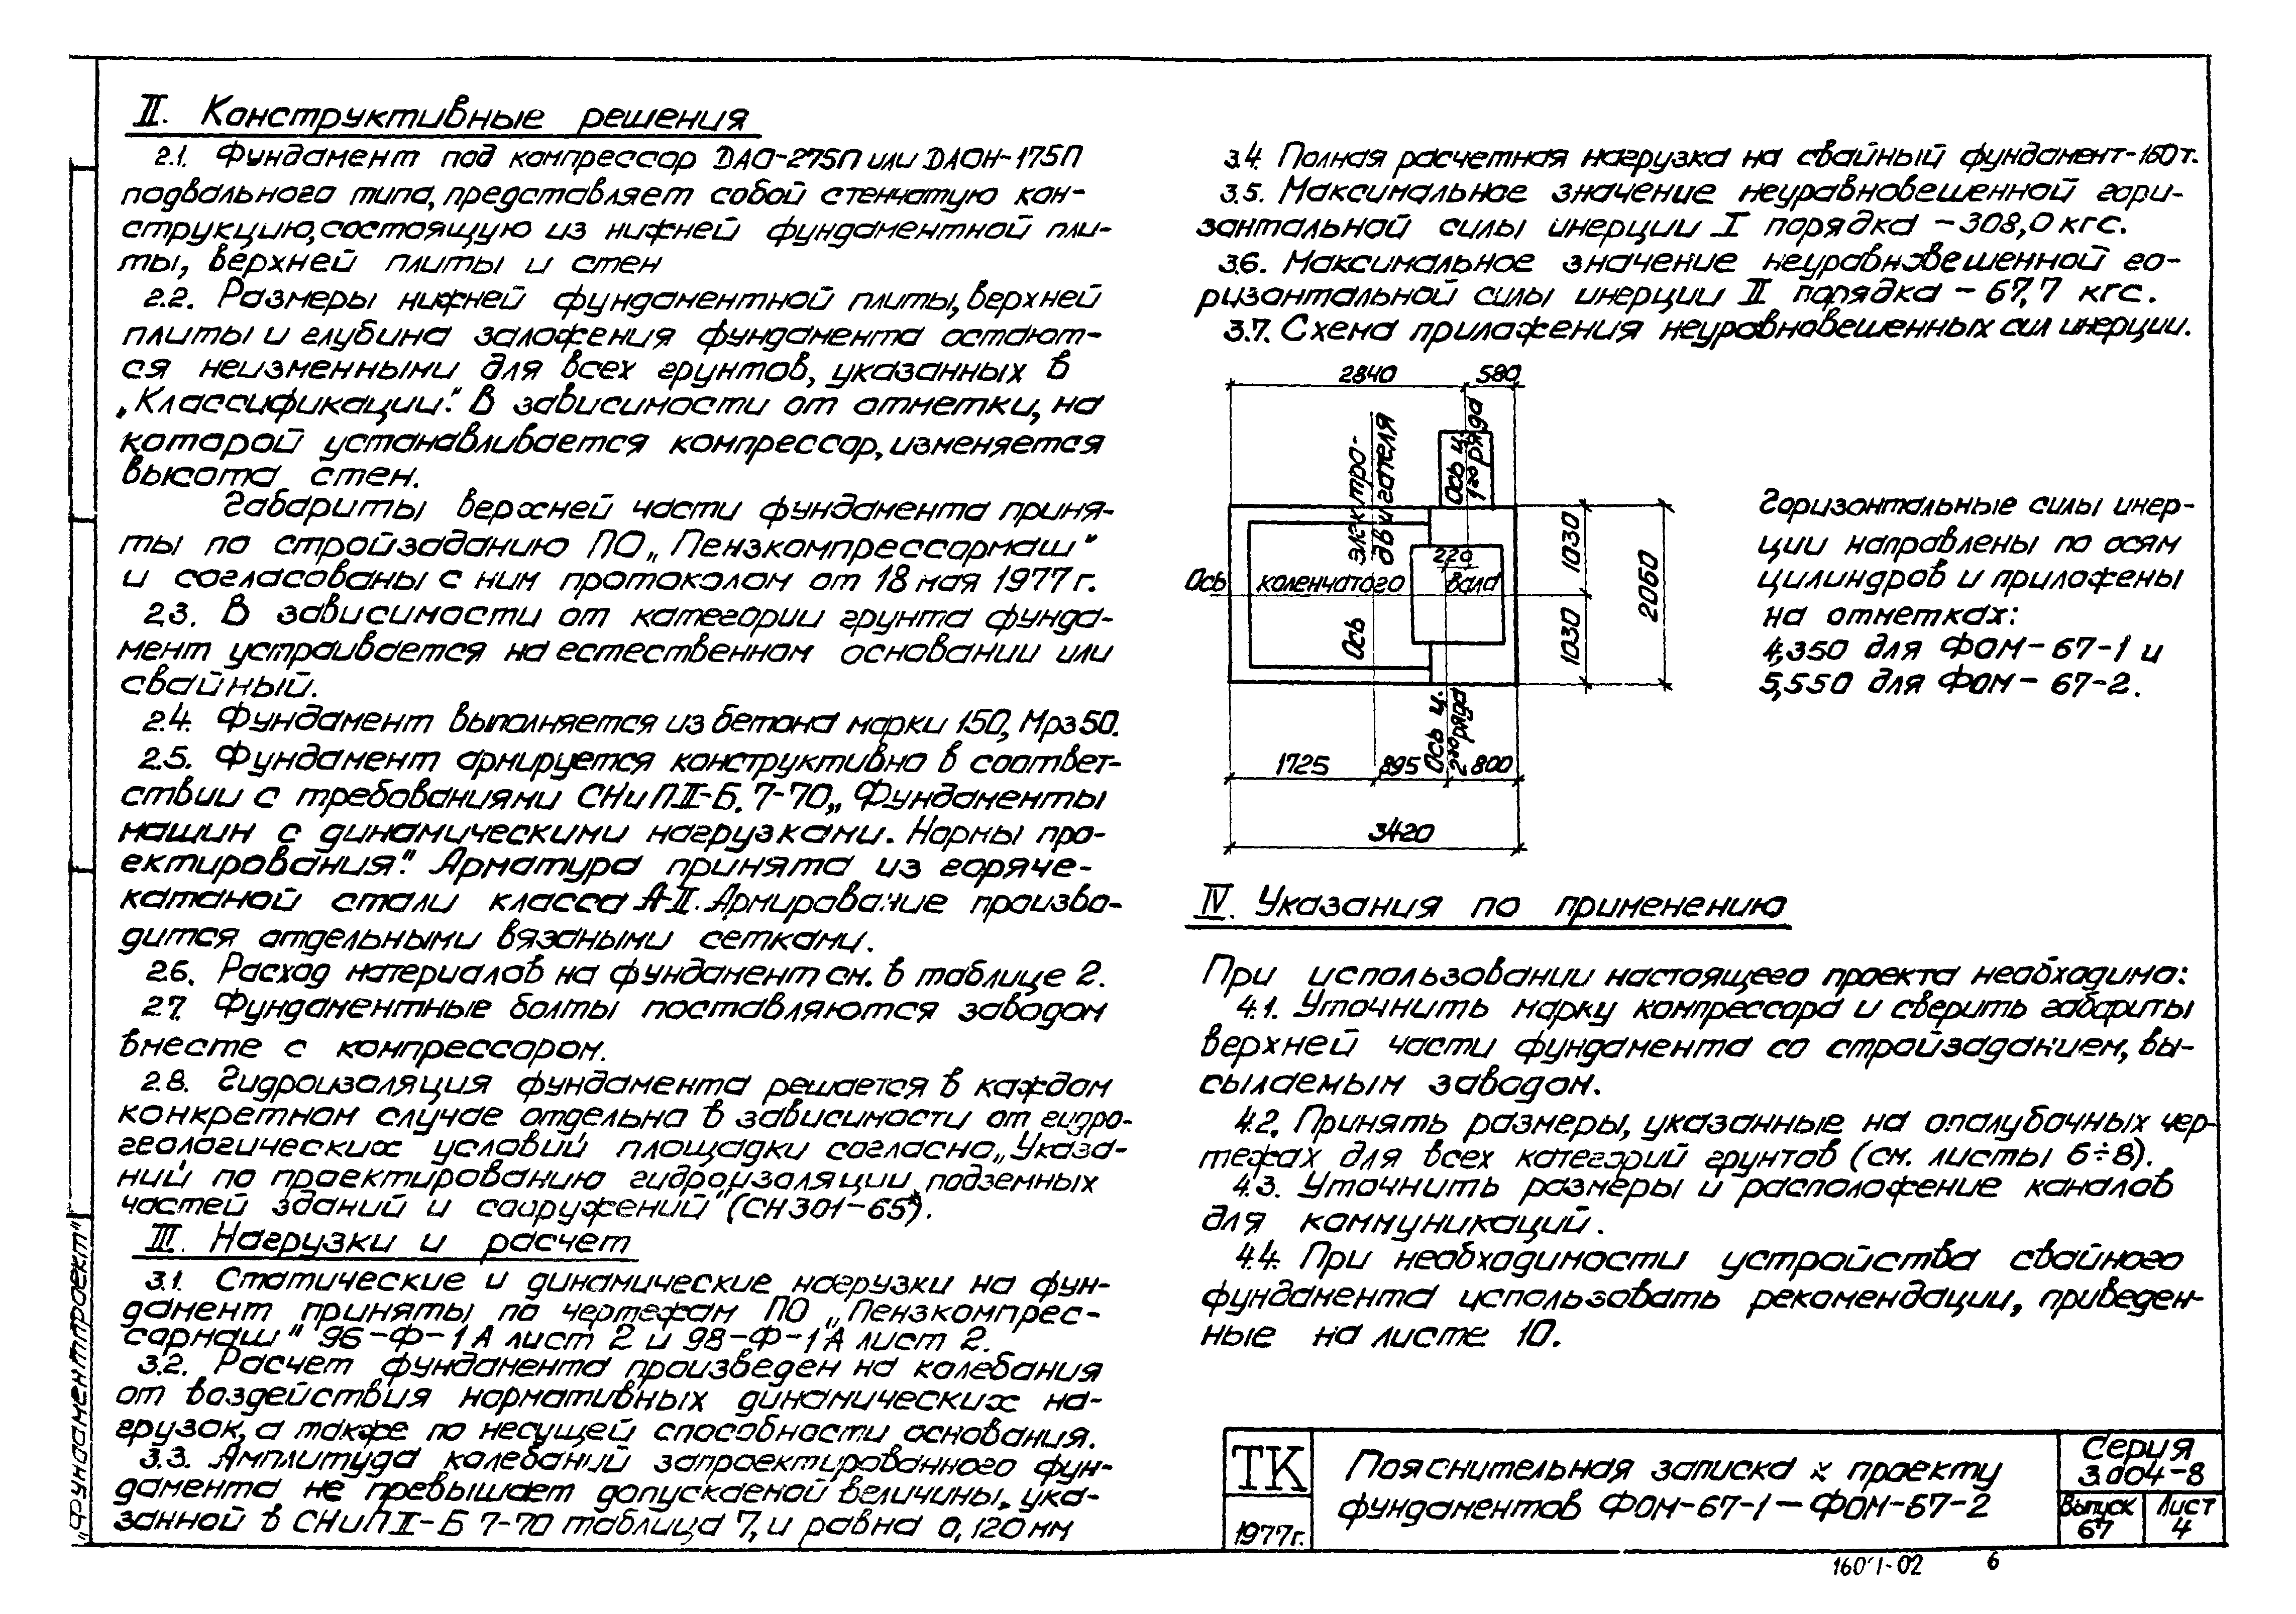 II. Конструктивные решения
2.1. Фундамент под компрессор ДАО-275П или ДАОН-175П
подвального типа, представляет собой стенчатую кон-
струкцию, состоящую из нижней фундаментной пли-
ты, верхней плиты и стен
2.2. Размеры нижней фундаментной плиты, верхней
плиты и глубина заложения фундамента остают-
ся неизменными для всех грунтов, указанных в
„Классификации". В зависимости от отметки, на
которой устанавливается компрессор, изменяется
высота стен.
Габариты верхней части фундамента приня-
ты по стройзаданию ПО „Пензкомпрессормаш"
и согласованы с ним протоколом от 18 мая 1977 г.
2.3. В зависимости от категории грунта фунда-
мент устраивается на естественном основании или
свайный.
2.4. Фундамент выполняется из бетона марки 150, Мрз 50.
2.5. Фундамент армируется конструктивно в соответ-
ствии с требованиями СНиП II-Б. 7-70 „Фундаменты
машин с динамическими нагрузками. Нормы про-
ектирования". Арматура принята из горяче-
катаной стали класса А-II. Армирование произво-
дится отдельными вязаными сетками.
2.6. Расход материалов на фундамент см. в таблице 2.
2.7. Фундаментные болты поставляются заводом
вместе с компрессором.
2.8. Гидроизоляция фундамента решается в каждом
конкретном случае отдельно в зависимости от гидро-
геологических условий площадки согласно „Указа-
ний по проектированию гидроизоляции подземных
частей зданий и сооружений" (СН 301-65*).
III. Нагрузки и расчет
3.1. Статические и динамические нагрузки на фун-
дамент приняты по чертежам ПО „Пензкомпрес-
сормаш" 96-Ф-1А лист 2 и 98-Ф-1А лист 2.
3.2. Расчет фундамента произведен на колебания
от воздействия нормативных динамических на-
грузок, а также по несущей способности основания.
3.3. Амплитуда колебаний запроектированного фун-
дамента не превышает допускаемой величины, ука-
занной в СНиП II-Б 7-70 таблица 7, и равна 0,120 мм
3.4. Полная расчетная нагрузка на свайный фундамент-160т.
3.5. Максимальное значение неуравновешенной гори-
зонтальной силы инерции I порядка - 308,0 кгс.
3.6. Максимальное значение неуравновешенной го-
ризонтальной силы инерции II порядка - 67,7 кгс.
3.7. Схема приложения неуравновешенных сил инерции.
2840
580
Ось электро-
двигателя
Ось ц.
1го ряда
220
Ось коленчатого вала
1030
1030
2060
Ось ц.
2го ряда
1725
895
800
3420
Горизонтальные силы инер-
ции направлены по осям
цилиндров и приложены
на отметках:
4,350 для ФОМ-67-1 и
5,550 для ФОМ-67-2.
IV. Указания по применению
При использовании настоящего проекта необходимо:
4.1. Уточнить марку компрессора и сверить габариты
верхней части фундамента со стройзаданием, вы-
сылаемым заводом.
4.2. Принять размеры, указанные на опалубочных чер-
тежах для всех категорий грунтов (см. листы 6÷8).
4.3. Уточнить размеры и расположение каналов
для коммуникаций.
4.4. При необходимости устройства свайного
фундамента использовать рекомендации, приведен-
ные на листе 10.
„Фундаментпроект"
ТК
1977г.
Пояснительная записка к проекту
фундаментов ФОМ-67-1 — ФОМ-67-2
Серия
3.004-8
Выпуск
67
Лист
4
6